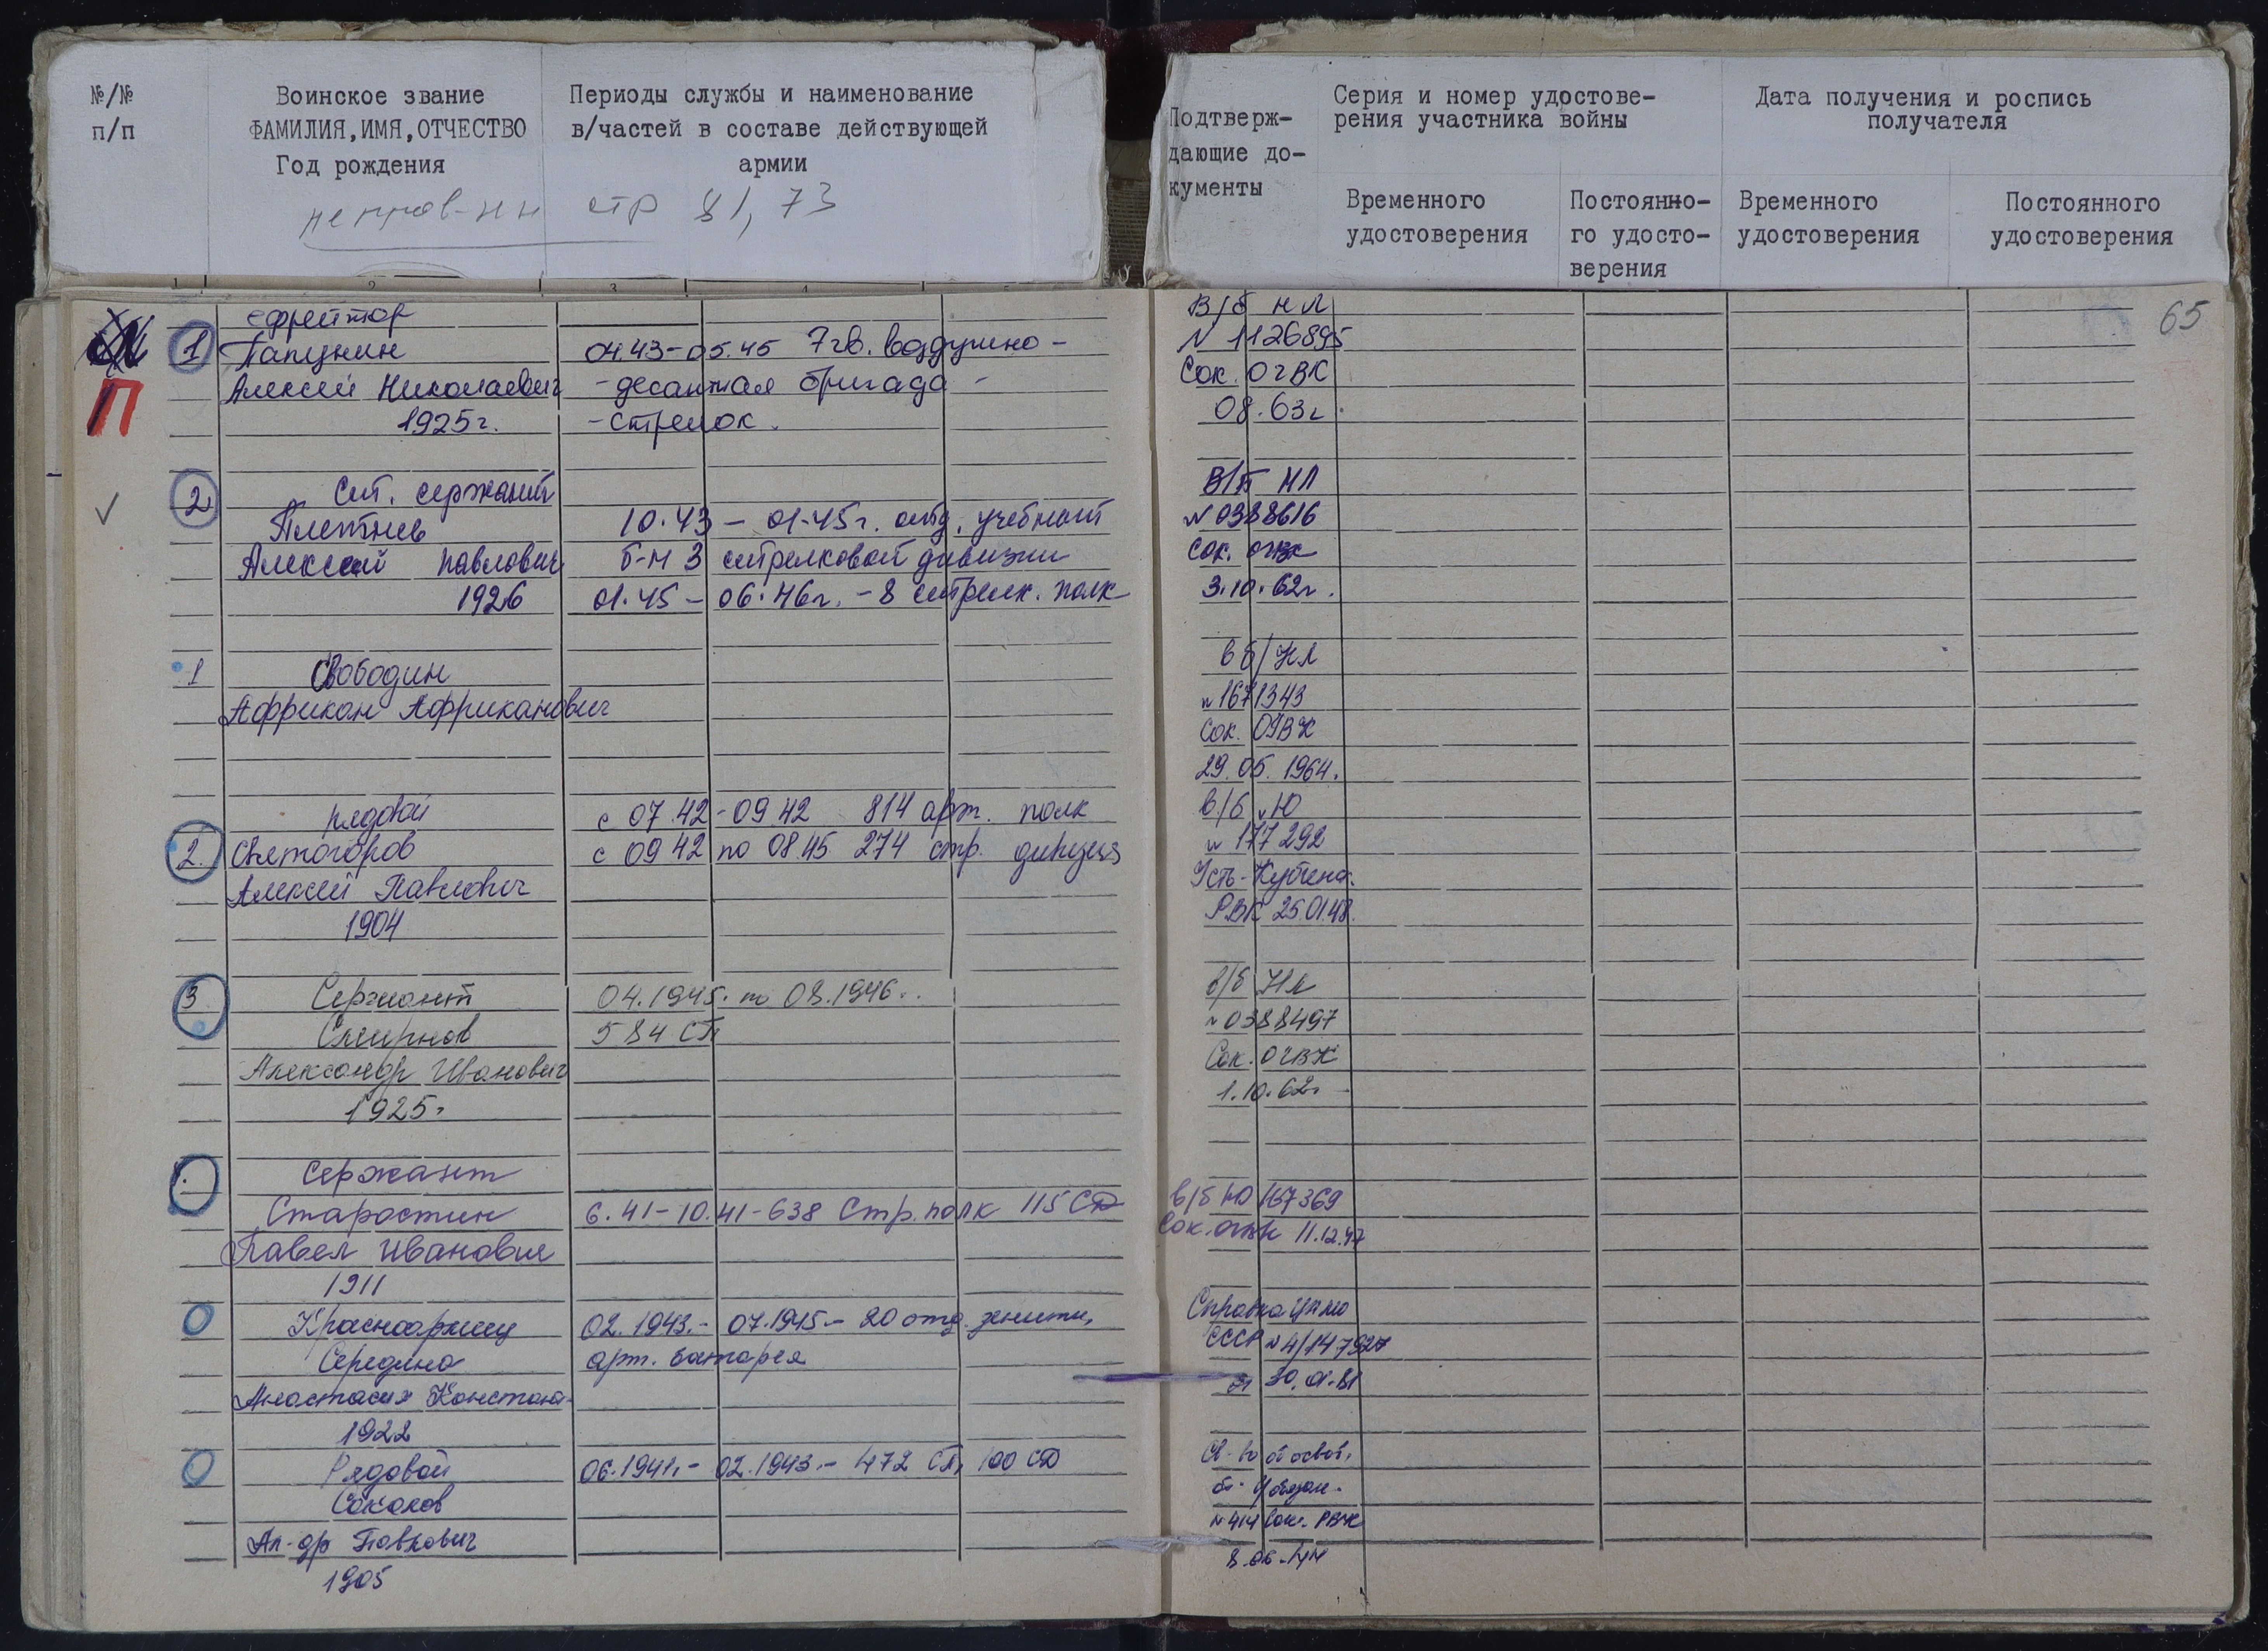 №/№
п/п
Воинское звание
ФАМИЛИЯ, ИМЯ, ОТЧЕСТВО
Год рождения
Периоды службы и наименование
в/частей в составе действующей
армии
стр 81, 73
Подтверж-
дающие до-
кументы
Серия и номер удостове-
рения участника войны
Дата получения и роспись
получателя
Временного
удостоверения
Постоянно-
го удосто-
верения
Временного
удостоверения
Постоянного
удостоверения
65
П
ефрейтор
1 Папунин
Алексей Николаевич
1925г.
04.43-05.45 7 гв. воздушно-
-десантная бригада -
-стрелок.
В/б НЛ
N 1126895
Сок. ОГВК
08.63г.
2 Ст. сержант
Плетнев
Алексей Павлович
1926
10.43 - 01.45г. отд. учебный
б-н 3 стрелковой дивизии
01.45 - 06.46г. - 8 стрелк. полк
В/б НЛ
N 0388616
Сок. ОГВК
3.10.62г.
1 Свободин
Африкан Африканович
в б/НЛ
N 1671343
Сок. ОГВК
29.05.1964.
рядовой
2. Святогоров
Алексей Павлович
1904
с 07.42 - 09 42 814 арт. полк
с 09 42 по 08.45 274 стр. дивизия
в/б Ю
N 177292
Усть-Кубин.
РВК 25.01.48.
3 Сержант
Смирнов
Александр Иванович
1925г
04.1945. по 08.1946..
584 СП
в/б НЛ
N 0388497
Сок. ОГВК
1.10.62г
Сержант
Старостин
Павел Иванович
1911
6.41-10.41-638 Стр. полк 115 СД
в/б Ю 167369
Сок. ОГВК 11.12.47
Красноармеец
Середина
Анастасия Констан-
1922
02.1943.- 07.1945- 20 отд. зенитн.
арт. батарея
Справка ЦАМО
СССР N 4/147927
Рядовой
Соколов
Ал-др Павлович
1905
06.1941.- 02.1943.- 472 СП, 100 СД
Св-во об освоб.
N 414 Сок. РВК